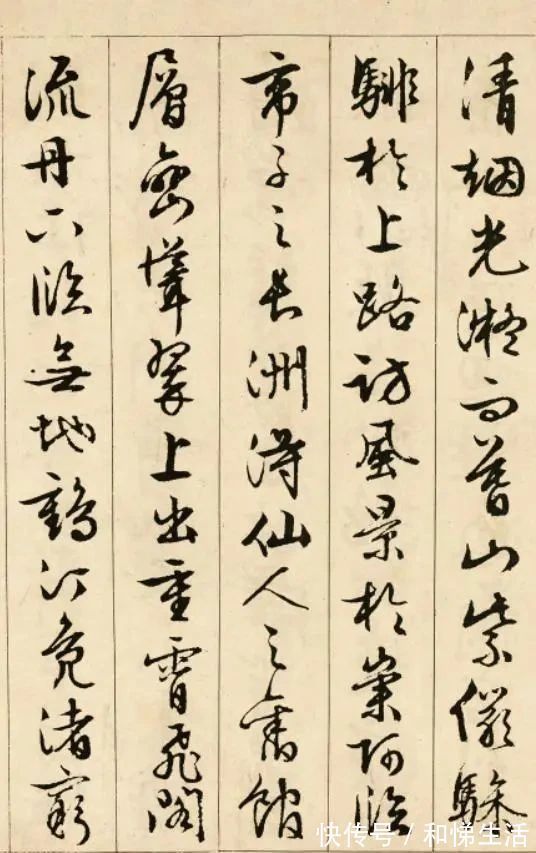 清烟光凝而暮山紫儼驂
騑於上路訪風景於崇阿臨
帝子之長洲得仙人之舊館
層巒聳翠上出重霄飛閣
流丹下臨無地鶴汀鳧渚窮
快传号 / 和悌生活